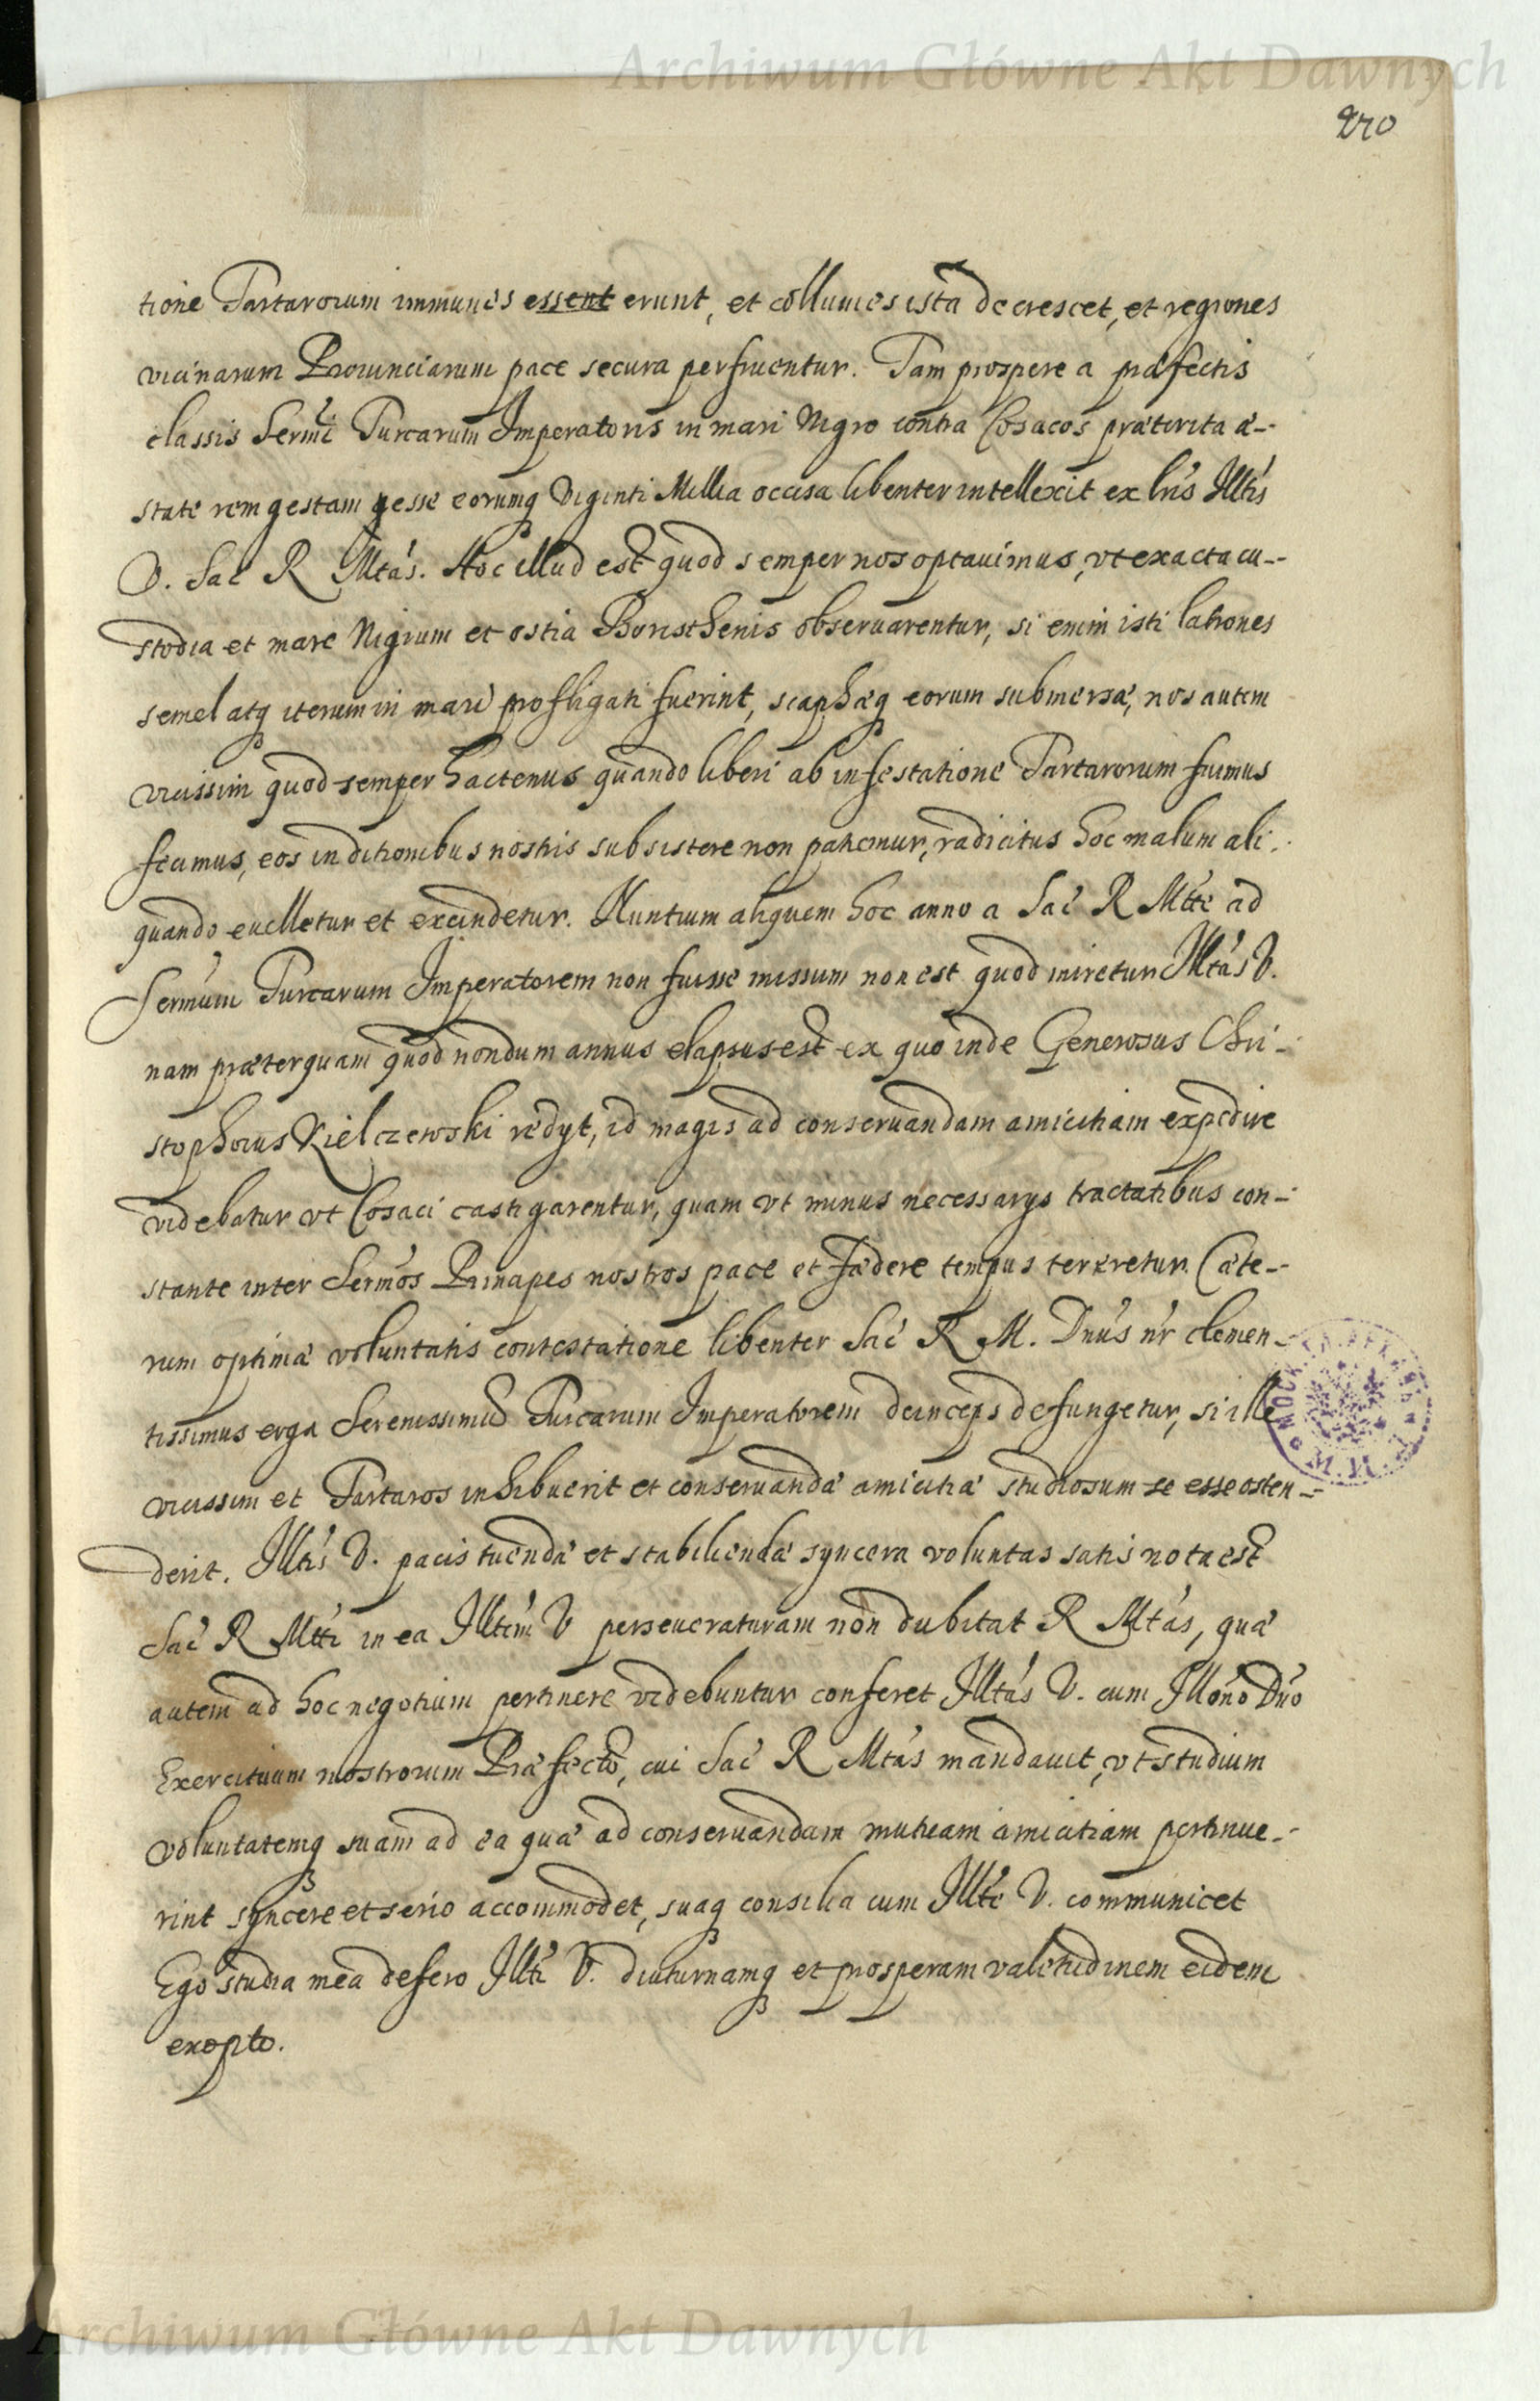 Archiwum Główne Akt Dawnych
270
tione Tartarorum immunes essent erunt, et colluuies ista decrescet, et regiones
vicinarum Prouinciarum pace secura perfruentur. Tam prospere a præfectis
classis Sermi Turcarum Imperatoris in mari Nigro contra Cosacos præterita æ-
state rem gestam esse eorumq Viginti Millia occisa libenter intellexit ex lris Illtis
V. Sac R Mtas. Hoc illud est quod semper nos optauimus, vt exacta cu-
stodia et mare Nigrum et ostia Boristhenis obseruarentur, si enim isti latrones
semel atq iterum in mari profligati fuerint, scaphæq eorum submersæ, nos autem
vicissim quod semper hactenus quando liberi ab infestatione Tartarorum fuimus
fecimus, eos in ditionibus nostris subsistere non patiemur, radicitus hoc malum ali-
quando euelletur et excindetur. Nuntium aliquem hoc anno a Sac R Mtte ad
Sermum Turcarum Imperatorem non fuisse missum non est quod miretur Illtas V.
nam præterquam quod nondum annus elapsus est ex quo inde Generosus Chri-
stophorus Kielczewski redyt, id magis ad conseruandam amicitiam expedire
videbatur vt Cosaci castigarentur, quam vt minus necessarys tractatibus con-
stante inter Sermos Principes nostros pace et fædere tempus tereretur. Cæte-
rum optimæ voluntatis contestatione libenter Sac R M. Dnus nr clemen-
tissimus erga Serenissimum Turcarum Imperatorem deinceps defungetur, si ille
vicissim et Tartaros inhibuerit et conseruandæ amicitiæ studiosum se esse osten-
derit. Illtis V. pacis tuendæ et stabiliendæ syncera voluntas satis nota est
Sac R Mtti in ea Illtem V perseueraturam non dubitat R Mtas, quæ
autem ad hoc negotium pertinere videbuntur conferet Illtas V. cum Illono Dno
Exercituum nostrorum Præfecto, cui Sac R Mtas mandauit, vt studium
voluntatemq suam ad ea quæ ad conseruandam mutuam amicitiam pertinue-
rint syncere et serio accommodet, suaq consilia cum Illte V. communicet
Ego studia mea defero Illti V. diuturnamq et prosperam valetudinem eidem
exopto.
Archiwum Główne Akt Dawnych